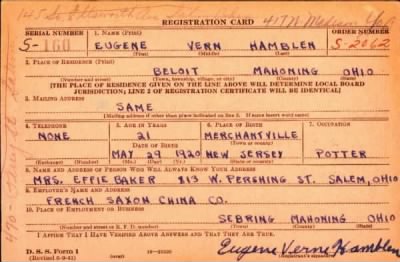 REGISTRATION CARD
417 N. Madison
SERIAL NUMBER
1. NAME (Print)
ORDER NUMBER
S-160
EUGENE VERN HAMBLEN
S-2062
(First) (Middle) (Last)
2. PLACE OF RESIDENCE (Print)
BELOIT MAHONING OHIO
(Number and street) (Town, township, village, or city) (County) (State)
[THE PLACE OF RESIDENCE GIVEN ON THE LINE ABOVE WILL DETERMINE LOCAL BOARD
JURISDICTION; LINE 2 OF REGISTRATION CERTIFICATE WILL BE IDENTICAL]
3. MAILING ADDRESS
SAME
[Mailing address if other than place indicated on line 2. If same insert word same]
4. TELEPHONE
5. AGE IN YEARS
6. PLACE OF BIRTH
7. OCCUPATION
NONE
21
MERCHANTVILLE
DATE OF BIRTH
(Town or county)
MAY 29 1920
NEW JERSEY
POTTER
(Exchange) (Number)
(Mo.) (Day) (Yr.)
(State or country)
8. NAME AND ADDRESS OF PERSON WHO WILL ALWAYS KNOW YOUR ADDRESS
MRS. EFFIE BAKER 813 W. PERSHING ST. SALEM, OHIO
9. EMPLOYER'S NAME AND ADDRESS
FRENCH SAXON CHINA CO.
10. PLACE OF EMPLOYMENT OR BUSINESS
SEBRING MAHONING OHIO
(Number and street or R. F. D. number) (Town) (County) (State)
I AFFIRM THAT I HAVE VERIFIED ABOVE ANSWERS AND THAT THEY ARE TRUE.
D. S. S. Form 1
(Revised 6-9-41)
Eugene Verne Hamblen